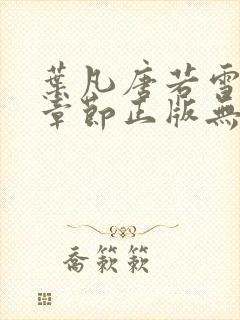 葉凡唐若雪
章節正版無
喬簌簌